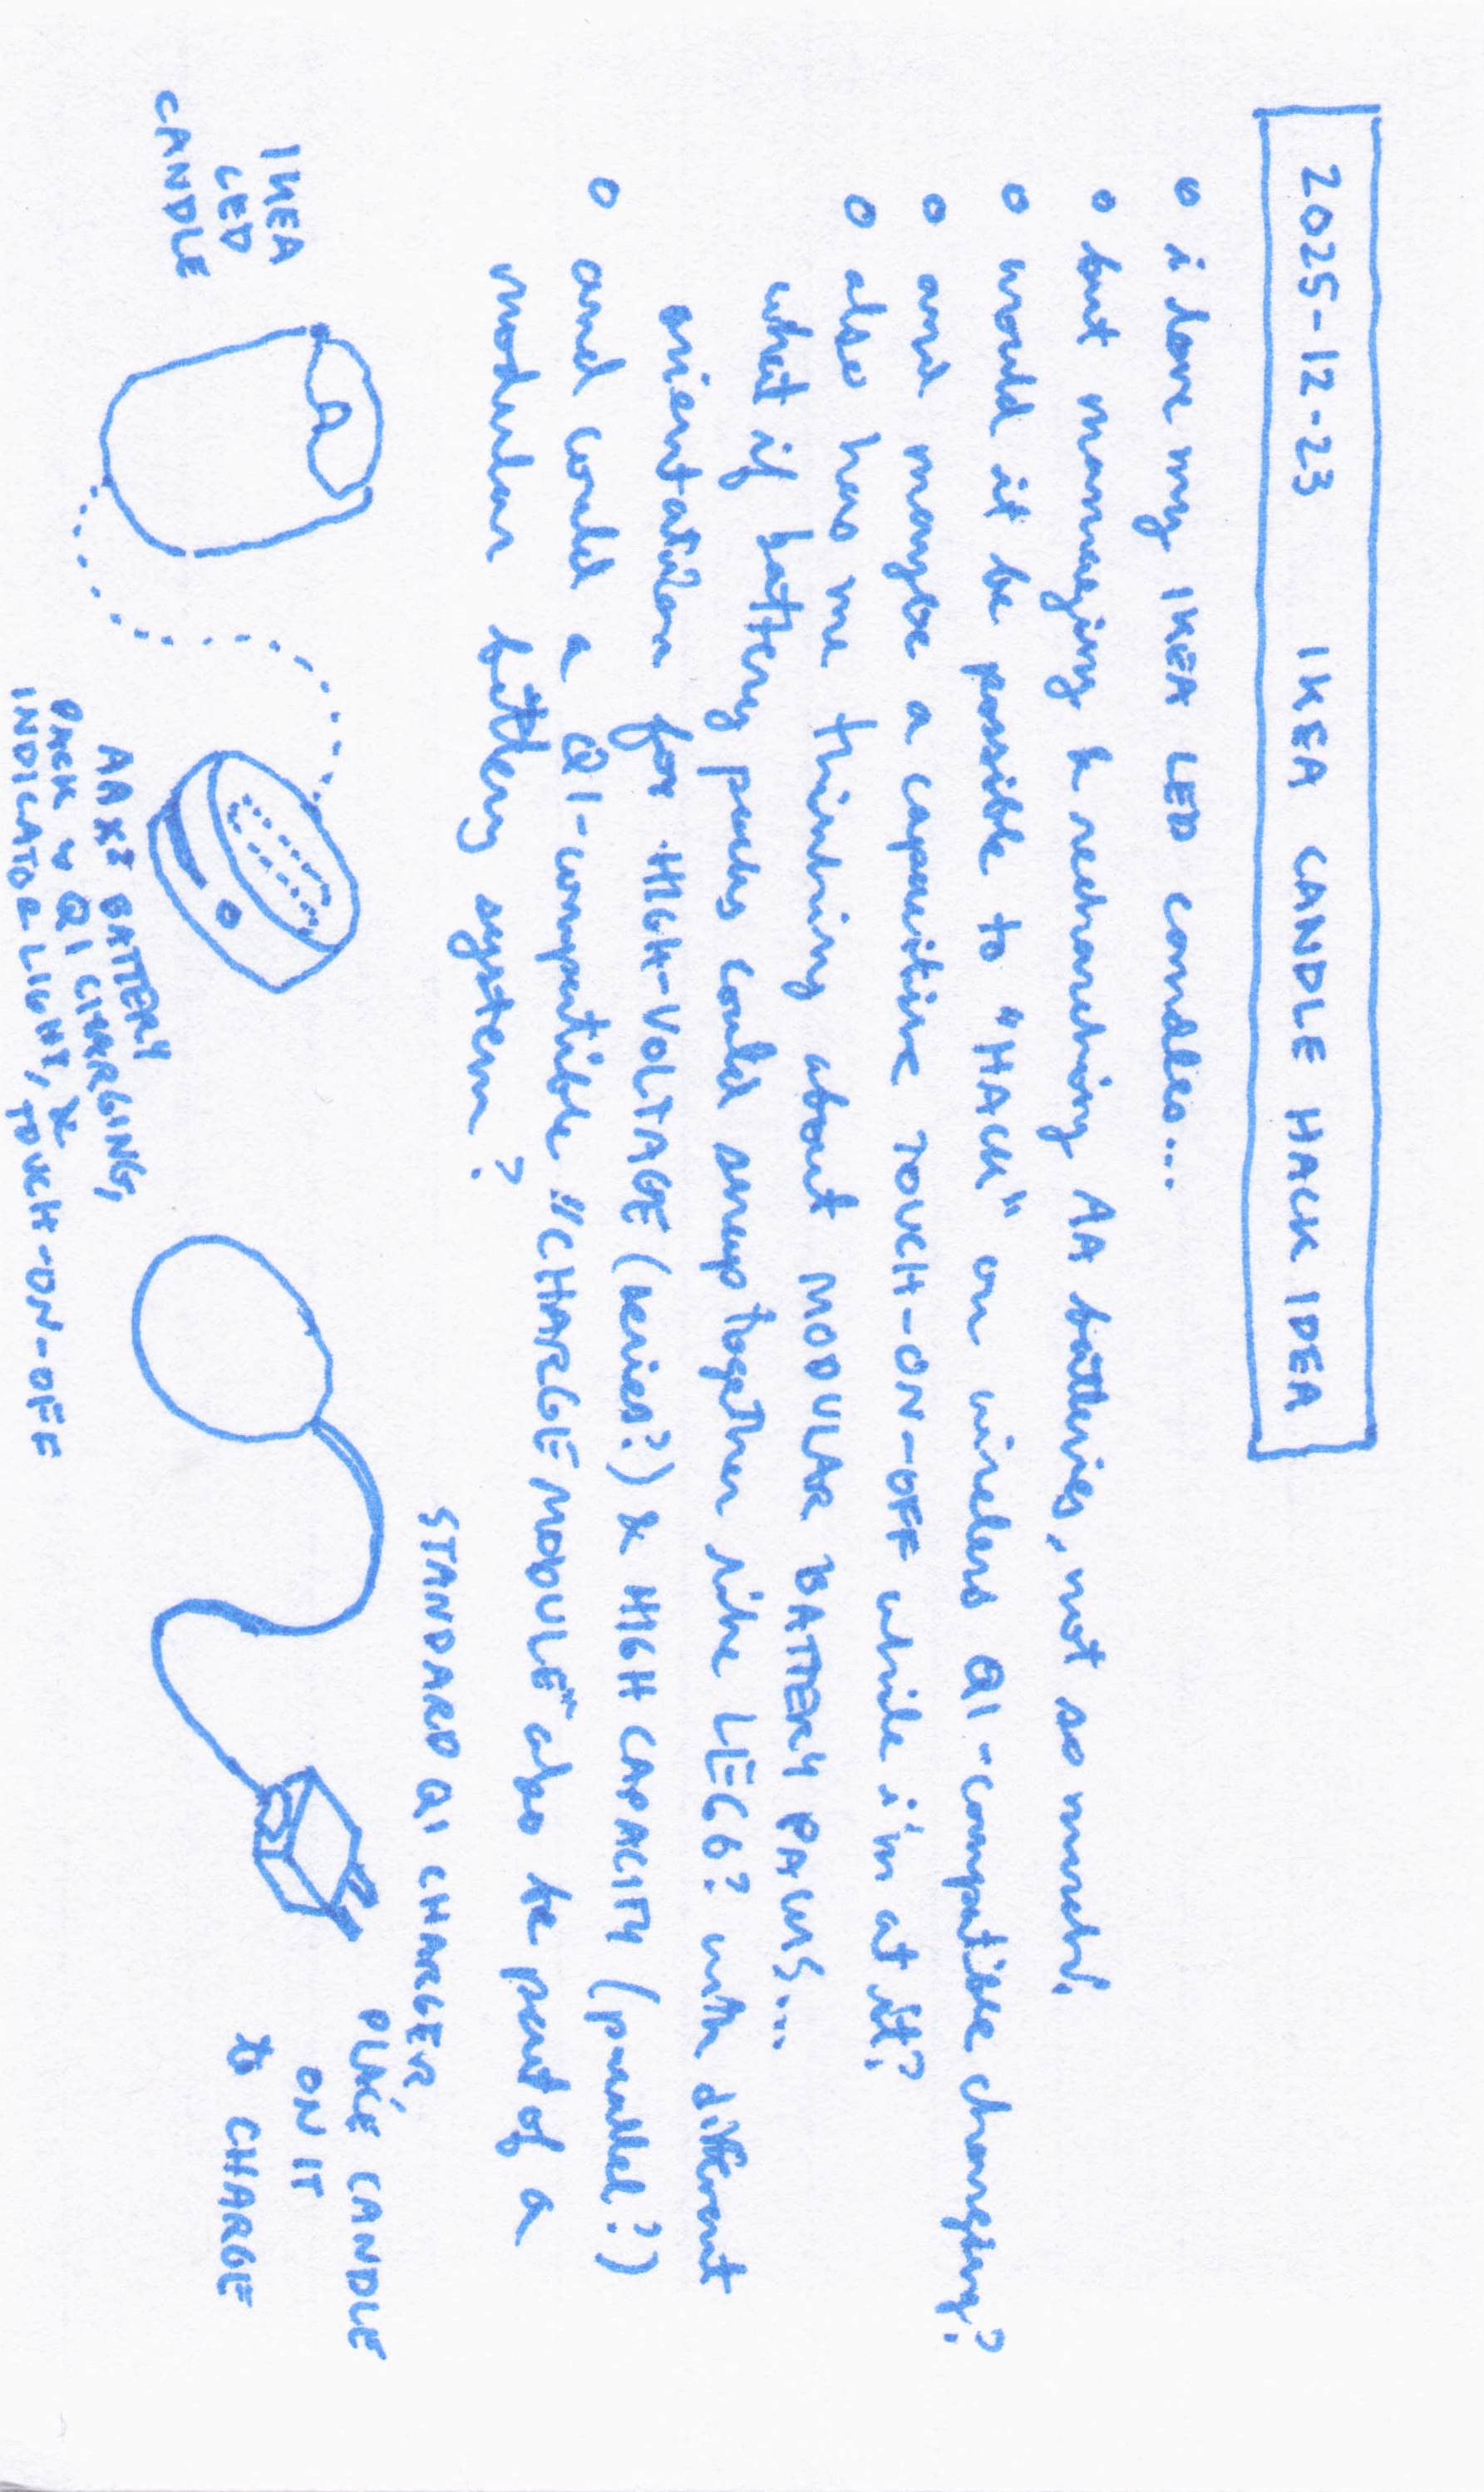 2025-12-23 IKEA CANDLE HACK IDEA
o i love my IKEA LED candles...
o but managing & recharching AA batteries, not so much!
o would it be possible to "HACK" on wireless QI-compatible charging?
o and maybe a capacitive TOUCH-ON-OFF while i'm at it?
o also has me thinking about MODULAR BATTERY PACKS...
what if battery packs could snap together like LEGO? with different
orientation for HIGH-VOLTAGE (series?) & HIGH CAPACITY (parallel?)
o and could a QI-compatible "CHARGE MODULE" also be part of a
modular battery system?
IKEA
LED
CANDLE
AA x2 BATTERY
PACK w QI CHARGING,
INDICATOR LIGHT, & TOUCH-ON-OFF
STANDARD QI CHARGER,
PLACE CANDLE
ON IT
to CHARGE